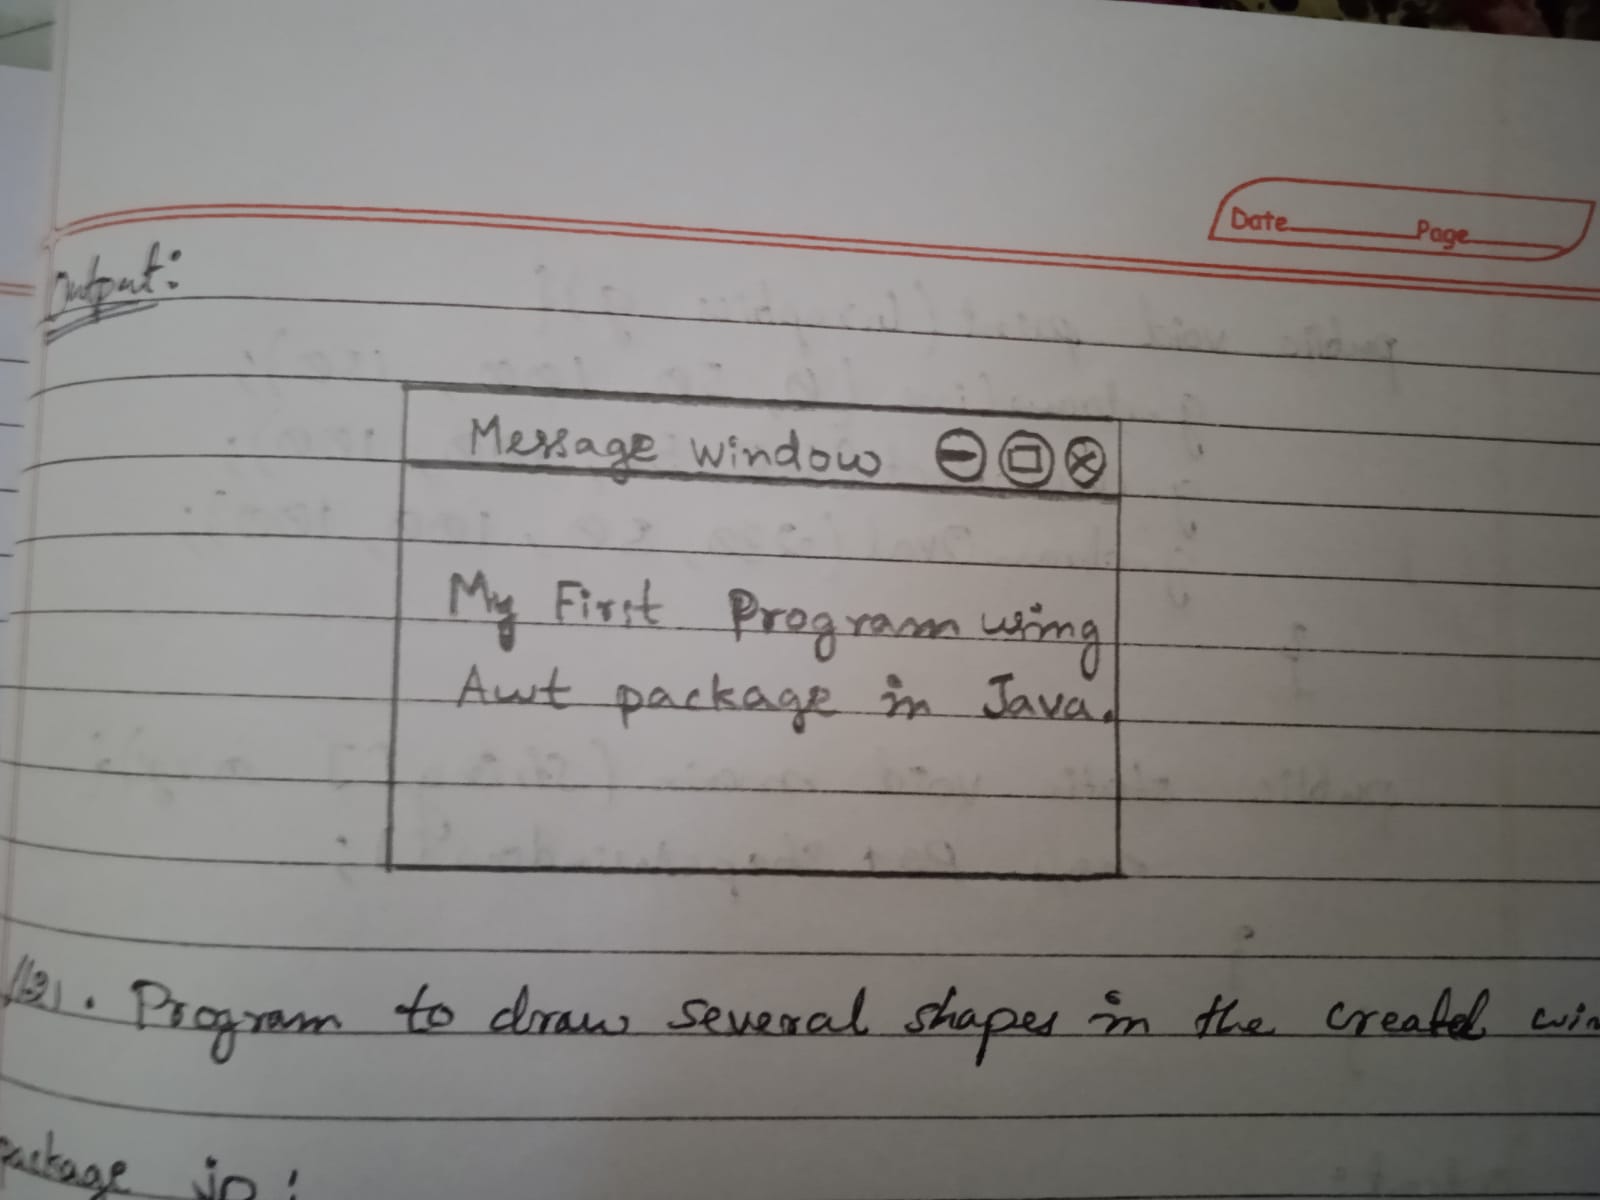 Date Page
Output:
Message window
My First Program using
Awt package in Java.
Program to draw several shapes in the created
package